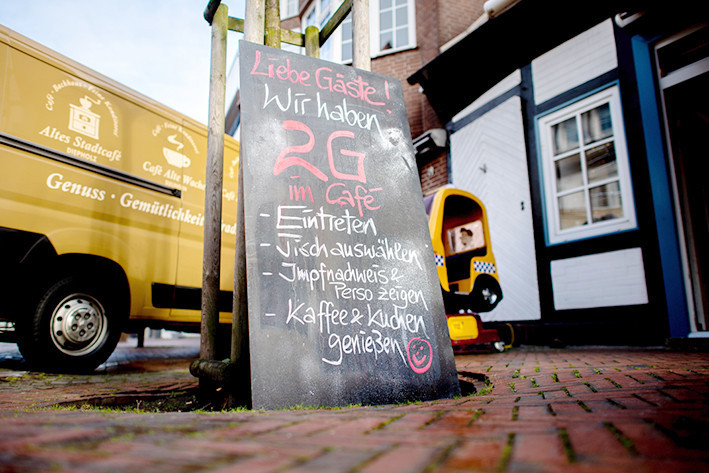 Liebe Gäste!
Wir haben
2G
im Café
- Eintreten
- Tisch auswählen
- Impfnachweis &
Perso zeigen
- Kaffee & Kuchen
genießen
Altes Stadtcafé
DIEPHOLZ
Café Alte
Genuss · Gemütlichkeit